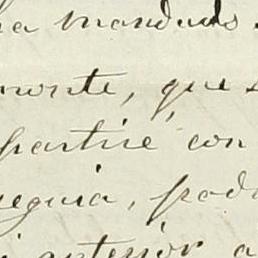 ha mandado
mente, que s
partire con
seguia, pod
i anterior a